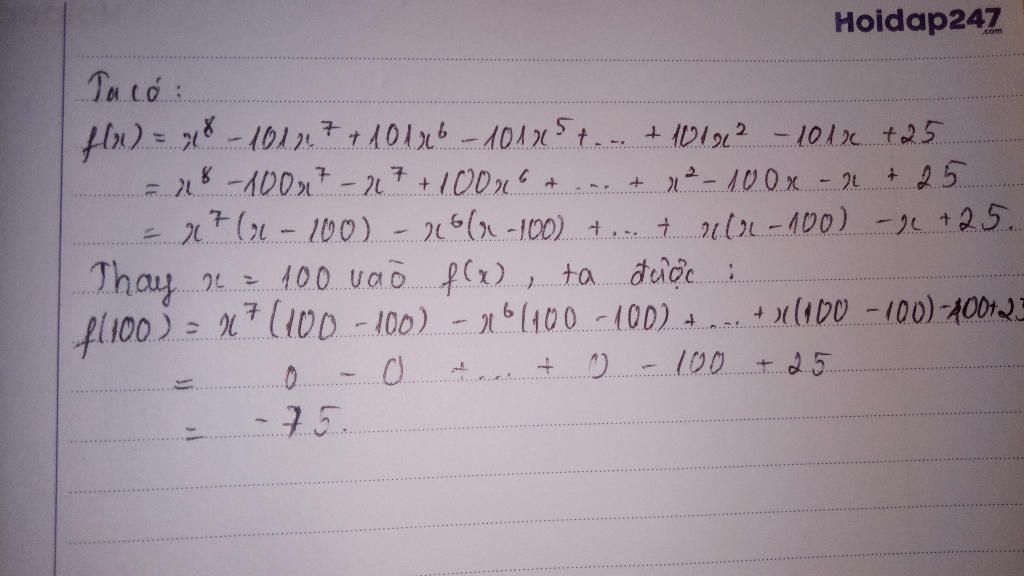 Hoidap247
.com
Ta có :
f(x) = x⁸ - 101x⁷ + 101x⁶ - 101x⁵ + ... + 101x² - 101x + 25
= x⁸ - 100x⁷ - x⁷ + 100x⁶ + ... + x² - 100x - x + 25
= x⁷(x - 100) - x⁶(x - 100) + ... + x(x - 100) - x + 25.
Thay x = 100 vào f(x), ta được :
f(100) = x⁷(100 - 100) - x⁶(100 - 100) + ... + x(100 - 100) - 100 +
= 0 - 0 + ... + 0 - 100 + 25
= -75.